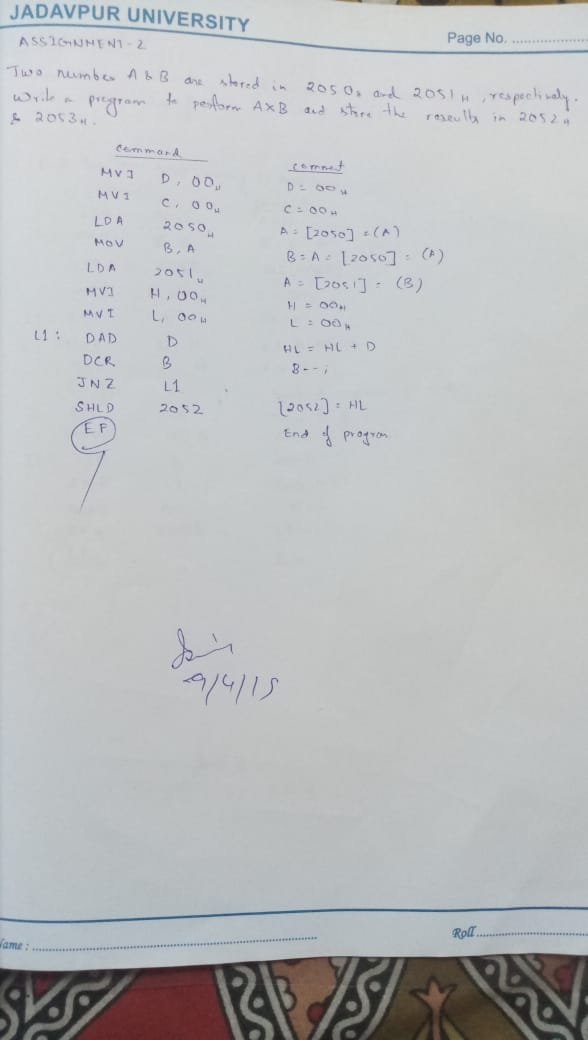 JADAVPUR UNIVERSITY
Page No. ..................
ASSIGNMENT-2
Two number A & B are stored in 2050H and 2051H, respectively.
Write a program to perform A×B and store the results in 2052H
& 2053H.
command comment
MVI D, 00H D = 00H
MVI C, 00H C = 00H
LDA 2050H A = [2050] = (A)
MOV B, A B = A = [2050] = (A)
LDA 2051H A = [2051] = (B)
MVI H, 00H H = 00H
MVI L, 00H L = 00H
L1 : DAD D HL = HL + D
DCR B B--;
JNZ L1
SHLD 2052 [2052] = HL
EF End of program
9/4/15
Name : ..................
Roll ..................